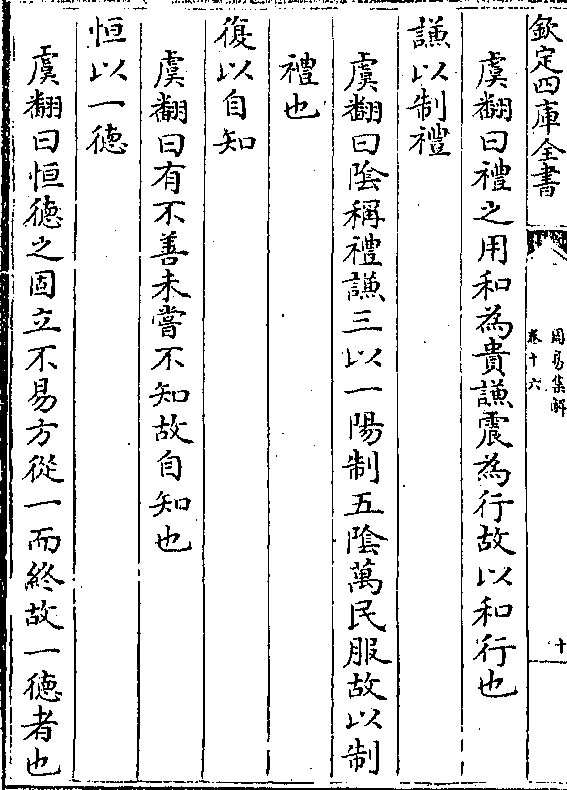 欽定四庫全書
周易集解
卷十六
十
虞翻曰禮之用和為貴謙震為行故以和行也
謙以制禮
虞翻曰陰稱禮謙三以一陽制五陰萬民服故以制
禮也
復以自知
虞翻曰有不善未嘗不知故自知也
恒以一德
虞翻曰恒德之固立不易方從一而終故一德者也